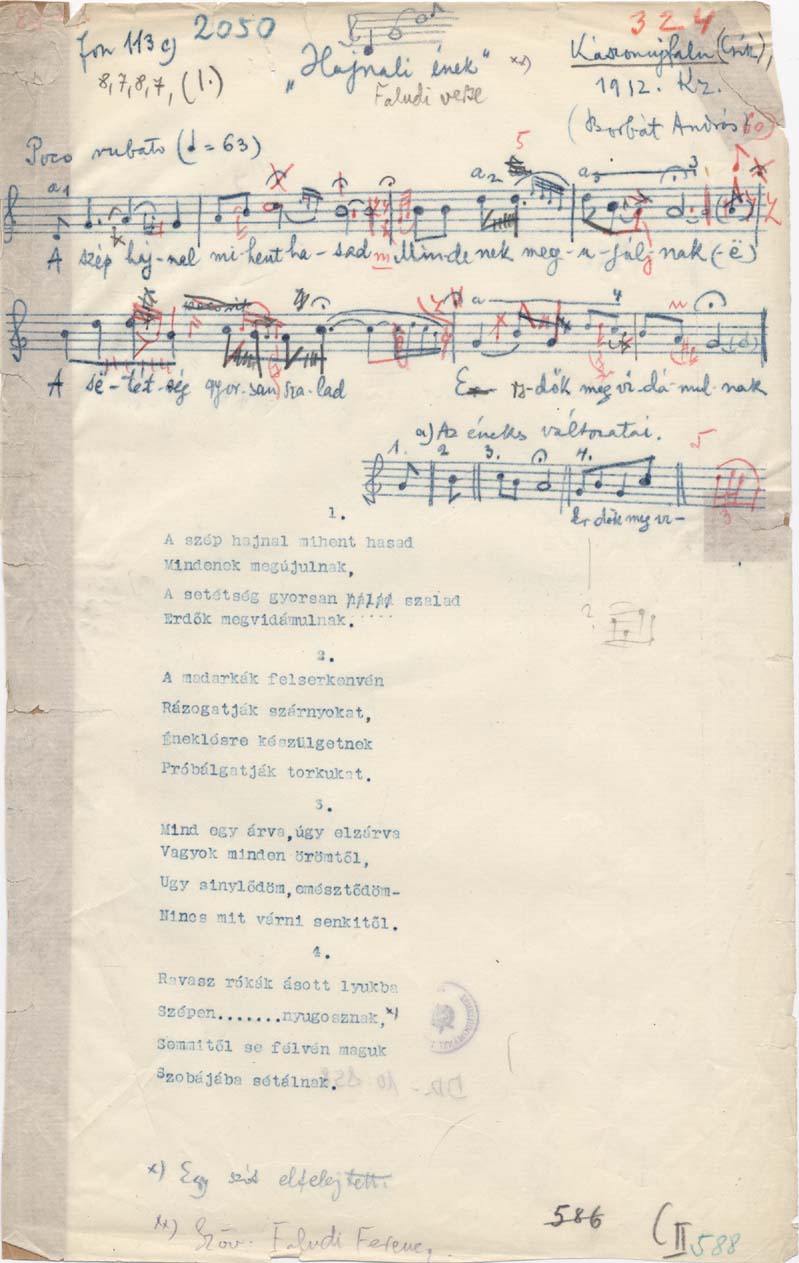 fon 113 c) 2050 324
8,7,8,7, (1.) „Hajnali ének" xx) Kászonujfalu (Csík),
Faludi verse 1912. Kz.
(Borbát András 60)
Poco rubato (♩ = 63)
a1 5 a2 a3 3
A szép haj-nal mi-hent ha-sad Min-de-nek meg-u-júl-nak (-ë)
a 4
A së-tét-ség gyor-san sza-lad Er-dők meg vi-dá-mul-nak
a) Az énekes változatai.
1. 2 3. 4. 5
Er dők meg vi-
3
1.
A szép hajnal mihent hasad
Mindenek megújulnak,
A setétség gyorsan szalad
Erdők megvidámulnak.
?
2.
A madarkák felserkenvén
Rázogatják szárnyokat,
Éneklésre készülgetnek
Próbálgatják torkukat.
3.
Mind egy árva,úgy elzárva
Vagyok minden örömtől,
Ugy sinylődöm,emésztődöm-
Nincs mit várni senkitől.
4.
Ravasz rókák ásott lyukba
Szépen.......nyugosznak, x)
Semmitől se félvén maguk
Szobájába sétálnak.
x) Egy szót elfelejtett
xx) Szöv. Faludi Ferenc.
586 C II 588